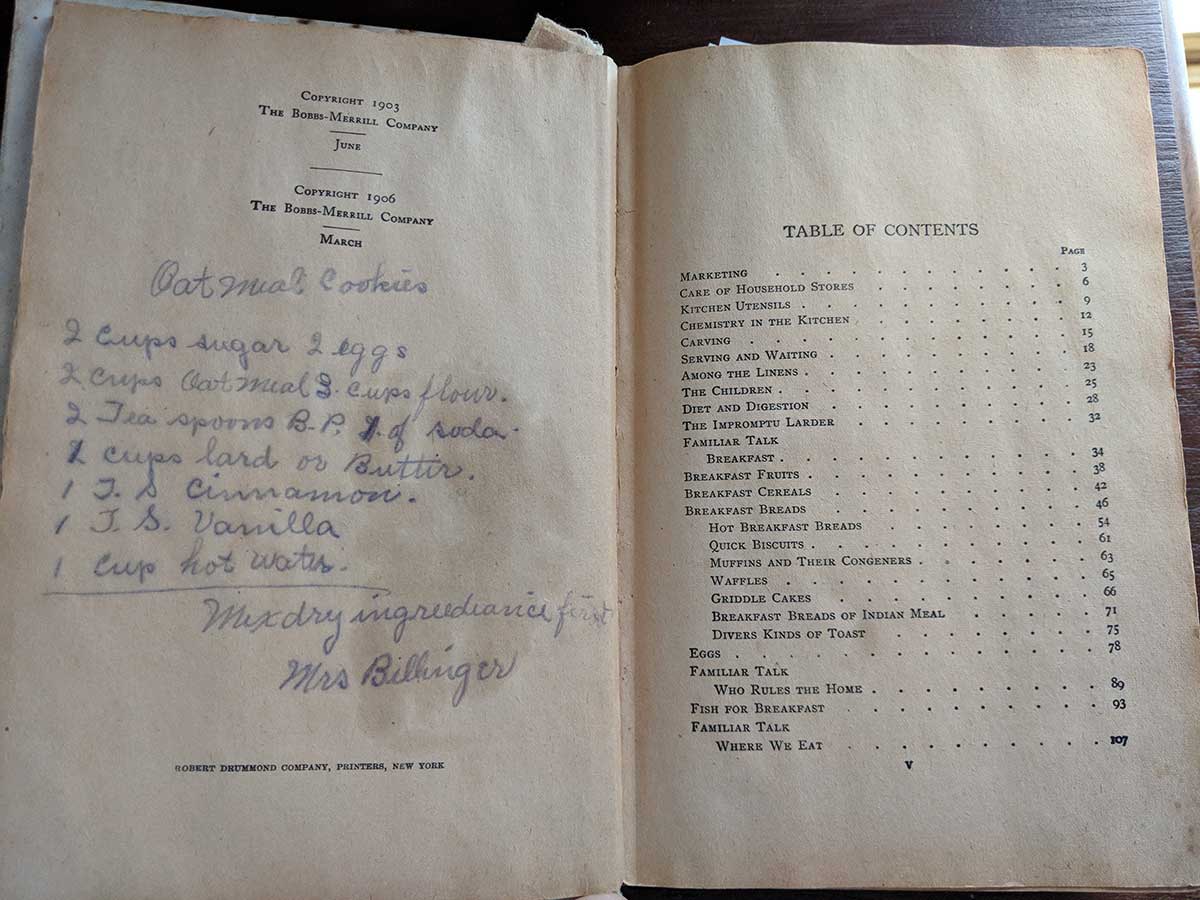 COPYRIGHT 1903
THE BOBBS-MERRILL COMPANY
JUNE
COPYRIGHT 1906
THE BOBBS-MERRILL COMPANY
MARCH
Oatmeal Cookies
2 cups sugar 2 eggs
2 cups Oatmeal 3 cups flour.
2 Tea spoons B.P. 1 of soda
cups lard or Butter.
1 T. S Cinnamon.
1 T. S. Vanilla
1 cup hot water.
Mix dry ingreediance first
Mrs Billinger
ROBERT DRUMMOND COMPANY, PRINTERS, NEW YORK
TABLE OF CONTENTS
PAGE
MARKETING 3
CARE OF HOUSEHOLD STORES 6
KITCHEN UTENSILS 9
CHEMISTRY IN THE KITCHEN 12
CARVING 15
SERVING AND WAITING 18
AMONG THE LINENS 23
THE CHILDREN 25
DIET AND DIGESTION 28
THE IMPROMPTU LARDER 32
FAMILIAR TALK
BREAKFAST 34
BREAKFAST FRUITS 38
BREAKFAST CEREALS 42
BREAKFAST BREADS 46
HOT BREAKFAST BREADS 54
QUICK BISCUITS 61
MUFFINS AND THEIR CONGENERS 63
WAFFLES 65
GRIDDLE CAKES 66
BREAKFAST BREADS OF INDIAN MEAL 71
DIVERS KINDS OF TOAST 75
EGGS 78
FAMILIAR TALK
WHO RULES THE HOME 89
FISH FOR BREAKFAST 93
FAMILIAR TALK
WHERE WE EAT 107
V